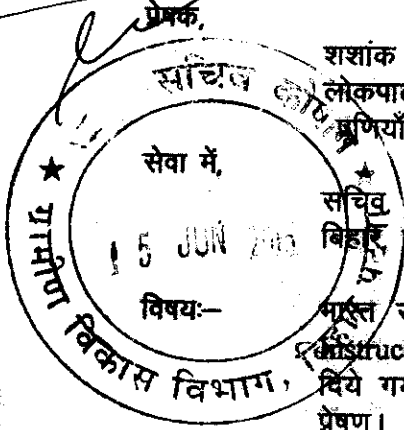 प्रेषक,
शशांक
लोकपाल
पूर्णियाँ
सेवा में,
सचिव
बिहार
विषयः—
भारत
दिये
प्रेषण।
सचिव
ग्रामीण विकास विभाग,
15 JUN